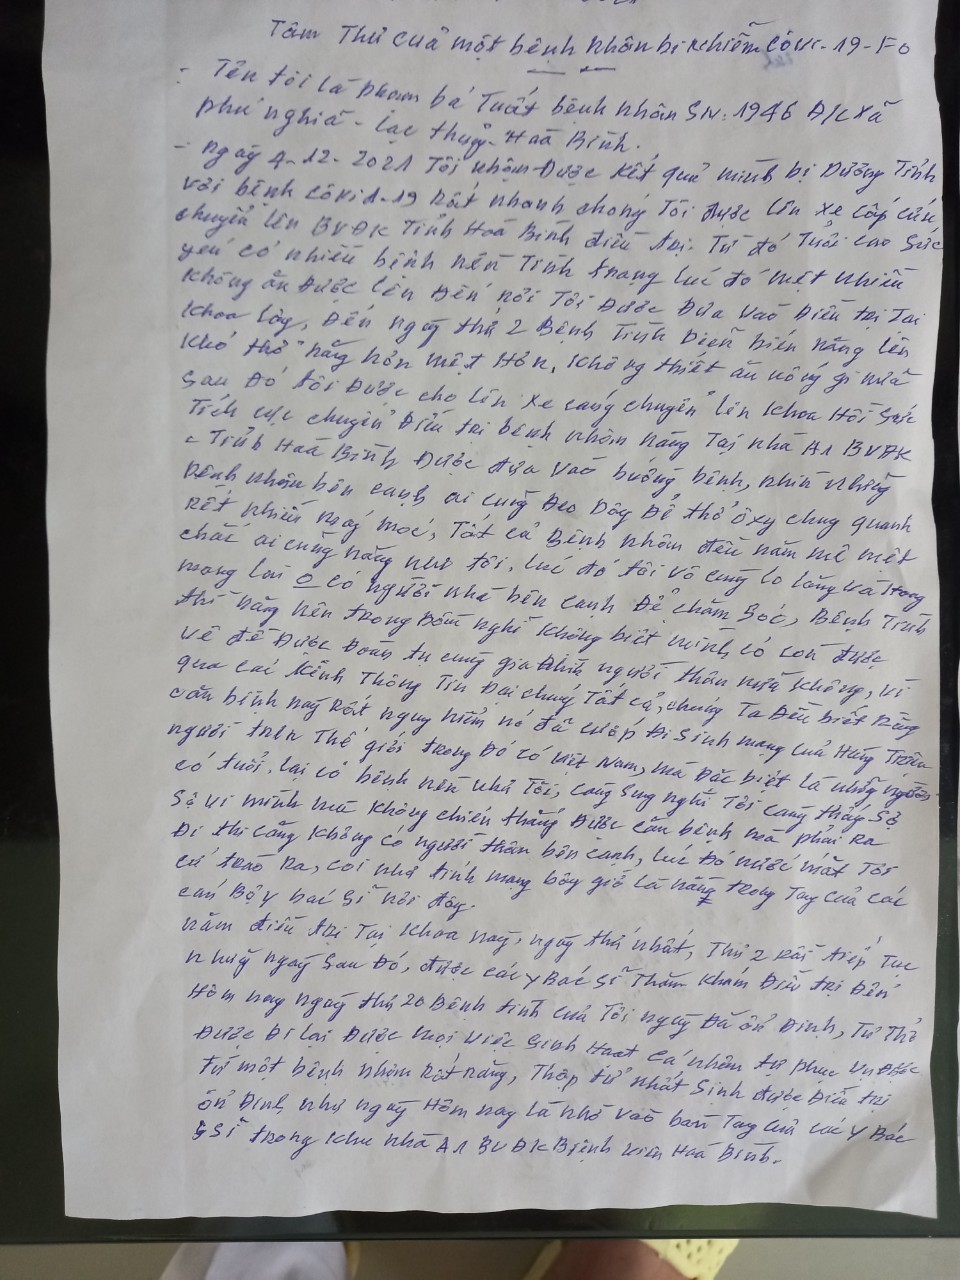 Tâm Thư của một bệnh nhân bị nhiễm Côvi-19-F0
- Tên tôi là phạm bá Tuất bệnh nhân SN: 1946 Đ/c xã
phú nghĩa - Lạc thuỷ - Hoà Bình.
- ngày 4-12-2021 Tôi nhận Được kết quả mình bị Dương Tính
với bệnh côvid-19 Rất nhanh chóng Tôi được lên xe cấp cứu
chuyển lên BVĐK Tỉnh Hoà Bình điều trị. Từ đó Tuổi cao sức
yếu có nhiều bệnh nền Tình trạng lúc đó mệt nhiều
không ăn Được lên Đến nơi Tôi Được Đưa vào Điều trị Tại
khoa lây, Đến ngày thứ 2 Bệnh Tình Diễn biến nặng lên
khó thở nặng hơn mệt Hơn, không thiết ăn uống gì nữa
sau Đó tôi Được cho lên xe cáng chuyển lên khoa Hồi sức
Tích cực chuyển Điều trị bệnh nhân nặng Tại nhà A1 BVĐK
Tỉnh Hoà Bình Được đưa vào buồng bệnh, nhìn những
bệnh nhân bên cạnh ai cũng Đeo Dây Để thở ôxy chug quanh
Rất nhiều máy moć, Tất cả Bệnh nhân đều nằm mê mệt
chắc ai cũng nặng như tôi. lúc đó tôi vô cùng lo lắng và Hoang
mang lại 0 có người nhà bên cạnh Để chăm sóc, Bệnh Tình
thì nặng nên trong Đầu nghĩ không biết mình có còn được
về để Được Đoàn tụ cùng gia Đình người thân nữa không, vì
qua các kênh Thông Tin Đại chúng Tất cả, chúng Ta Đều biết Rằng
căn bệnh này Rất nguy hiểm nó đã cướp Đi sinh mạng của Hàng Triệu
người trên Thế giới trong Đó có Việt Nam, mà Đặc biệt là những người
có tuổi. lại có bệnh nền như Tôi, càng suy nghĩ Tôi càng thấy sợ
sợ vì mình mà không chiến thắng Được căn bệnh mà phải Ra
Đi thì cũng không có người thân bên cạnh, lúc Đó nước mắt Tôi
cứ trào ra, coi như tính mạng bây giờ là nằm trong Tay của các
cán Bộ y bác sĩ nơi đây.
nằm điều trị Tại khoa này, ngày thứ nhất, Thứ 2 Rồi tiếp Tục
những ngày sau Đó, được các y Bác sĩ Thăm khám Điều trị Đến
Hôm nay ngày thứ 20 Bệnh tình của Tôi ngày Đã ổn Định, Tự Thở
Được Đi lại Được mọi việc sinh Hoạt Cá nhân tự phục vụ được
từ một bệnh nhân Rất nặng, Thập tử nhất sinh được Điều trị
ổn Định như ngày Hôm nay là nhờ vào bàn Tay của các y Bác
sĩ trong khu nhà A1 BVĐK Bệnh viện Hoà Bình.